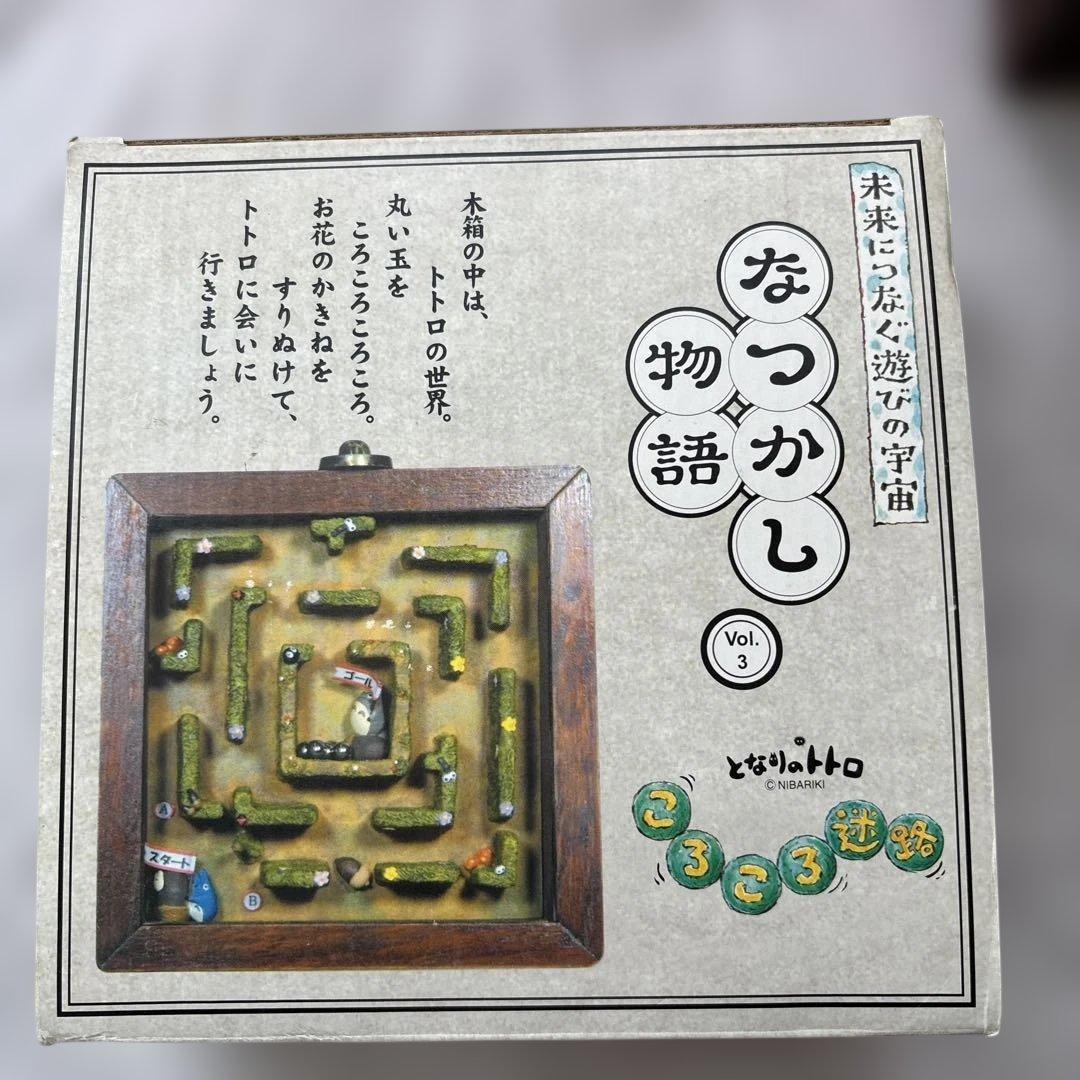 未来につなぐ遊びの宇宙
なつかし
物語
Vol.
3
となりのトトロ
©NIBARIKI
ころころ迷路
木箱の中は、
トトロの世界。
丸い玉を
ころころころころ。
お花のかきねを
すりぬけて、
トトロに会いに
行きましょう。
ゴール
A
スタート
B